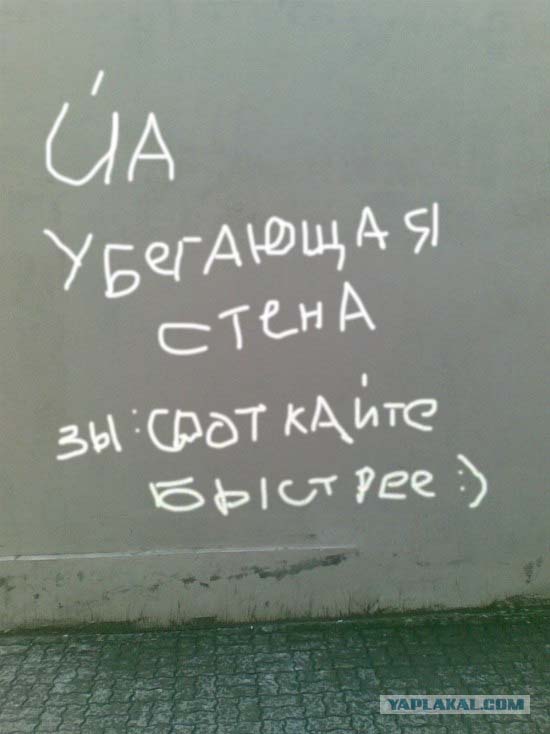 ЙА
УБЕГАЮЩАЯ
СТЕНА
ЗЫ: СФОТКАЙТЕ
БЫСТРЕЕ :)
YAPLAKAL.COM